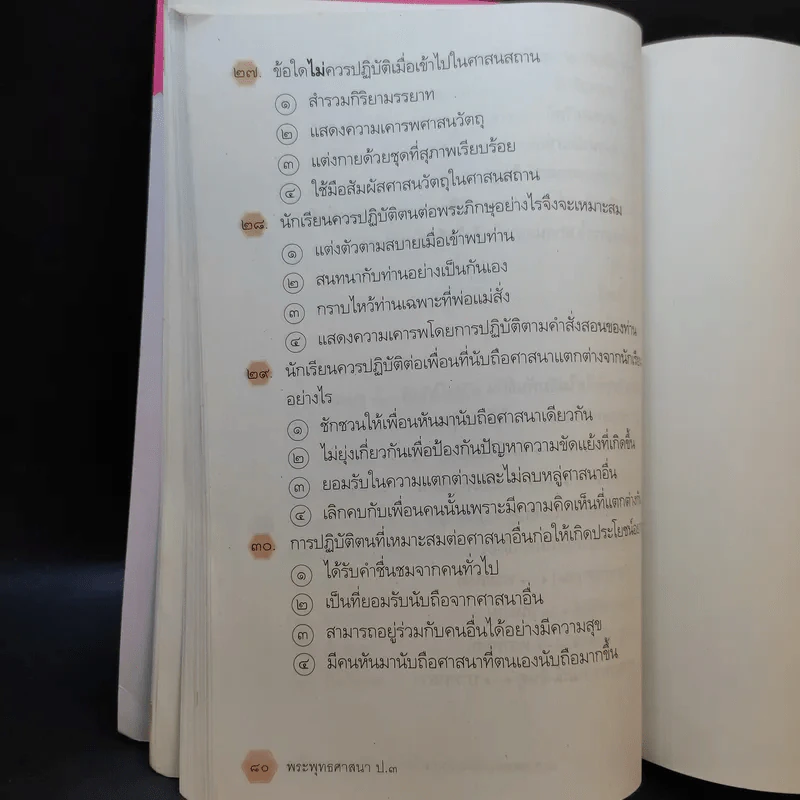 ๒๗. ข้อใดไม่ควรปฏิบัติเมื่อเข้าไปในศาสนสถาน
๑ สำรวมกิริยามรรยาท
๒ แสดงความเคารพศาสนวัตถุ
๓ แต่งกายด้วยชุดที่สุภาพเรียบร้อย
๔ ใช้มือสัมผัสศาสนวัตถุในศาสนสถาน
๒๘. นักเรียนควรปฏิบัติตนต่อพระภิกษุอย่างไรจึงจะเหมาะสม
๑ แต่งตัวตามสบายเมื่อเข้าพบท่าน
๒ สนทนากับท่านอย่างเป็นกันเอง
๓ กราบไหว้ท่านเฉพาะที่พ่อแม่สั่ง
๔ แสดงความเคารพโดยการปฏิบัติตามคำสั่งสอนของท่าน
๒๙. นักเรียนควรปฏิบัติต่อเพื่อนที่นับถือศาสนาแตกต่างจาก
อย่างไร
๑ ชักชวนให้เพื่อนหันมานับถือศาสนาเดียวกัน
๒ ไม่ยุ่งเกี่ยวกันเพื่อป้องกันปัญหาความขัดแย้งที่เกิดขึ้น
๓ ยอมรับในความแตกต่างและไม่ลบหลู่ศาสนาอื่น
๔ เลิกคบกับเพื่อนคนนั้นเพราะมีความคิดเห็นที่แตกต่าง
๓๐. การปฏิบัติตนที่เหมาะสมต่อศาสนาอื่นก่อให้เกิดประโยชน์
๑ ได้รับคำชื่นชมจากคนทั่วไป
๒ เป็นที่ยอมรับนับถือจากศาสนาอื่น
๓ สามารถอยู่ร่วมกับคนอื่นได้อย่างมีความสุข
๔ มีคนหันมานับถือศาสนาที่ตนเองนับถือมากขึ้น
๘๐ พระพุทธศาสนา ป.๓